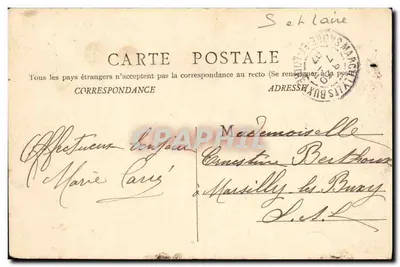 S et Loire
CARTE POSTALE
Tous les pays étrangers n'acceptent pas la correspondance au recto (Se renseigner à la poste)
CORRESPONDANCE
ADRESSE
Affectueux bonjour
Marie Carré
Mademoiselle
Ernestine Berthoux
à Marsilly les Buxy
S.-&-L